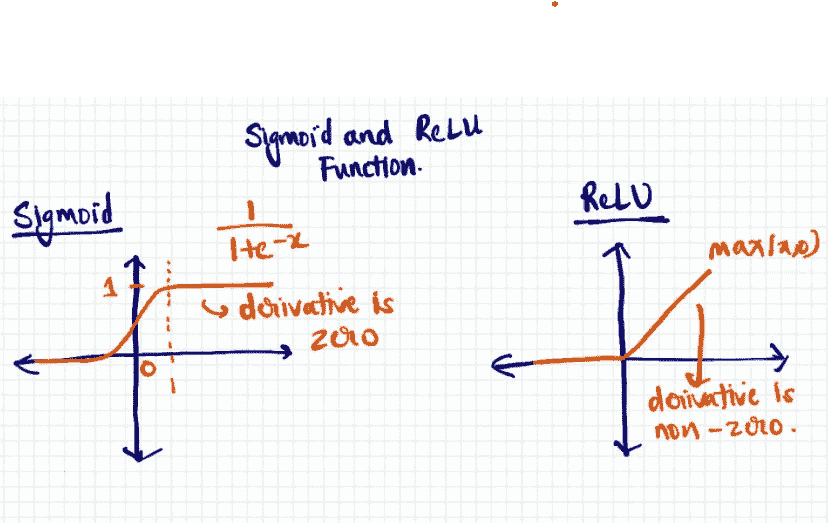 Sigmoid and ReLU
Function.
Sigmoid
1
1+e^-x
1
derivative is
zero
0
ReLU
max(x,0)
derivative is
non-zero.